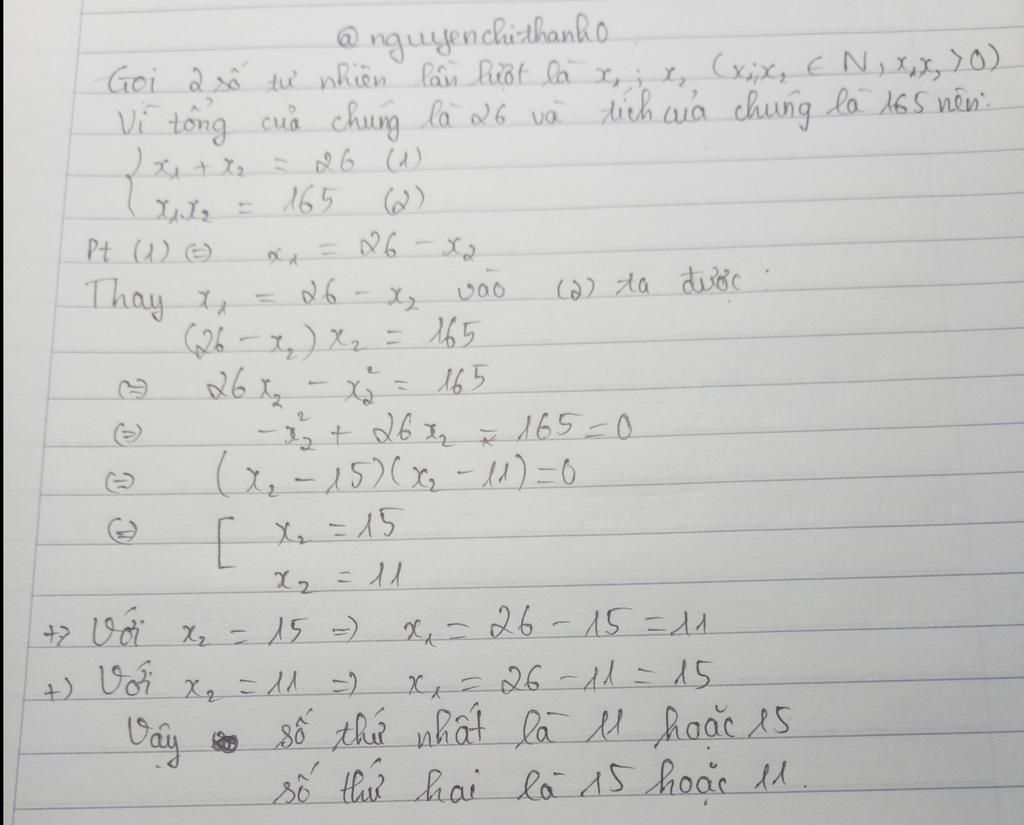 @nguyenchithanh0
Gọi 2 số tự nhiên lần lượt là x₁; x₂ (x₁;x₂ ∈ N, x₁x₂ > 0)
Vì tổng của chúng là 26 và tích của chúng là 165 nên:
{ x₁ + x₂ = 26 (1)
x₁.x₂ = 165 (2)
Pt (1) ⇔ x₁ = 26 - x₂
Thay x₁ = 26 - x₂ vào (2) ta được:
(26 - x₂) x₂ = 165
⇔ 26x₂ - x₂² = 165
⇔ -x₂² + 26x₂ - 165 = 0
⇔ (x₂ - 15)(x₂ - 11) = 0
⇔ [ x₂ = 15
x₂ = 11
+) Với x₂ = 15 ⇒ x₁ = 26 - 15 = 11
+) Với x₂ = 11 ⇒ x₁ = 26 - 11 = 15
Vậy số thứ nhất là 11 hoặc 15
số thứ hai là 15 hoặc 11.